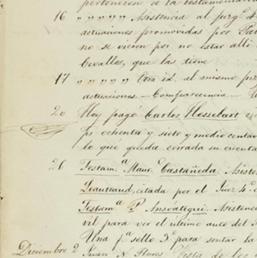 pertenecen de la testamentaria
16 " " " " " Asistencia al juzg
actuaciones promovidas por
no se vieron por no estar alli
Cevallos, que las tiene
17 " " " " " Otra id. al mismo juz
actuaciones.— Comparecencia —
20 Hoy pagó Carlos Hesselart
ps ochenta y siete y medio centavos
lo que queda cerrada su cuenta
26 Testam.ª Maur. Castañeda. Asisten
citada por el Juez 4.
Testam.ª P. Ansoategui. Asistenci
vil para ver el ultimo auto del
Una f.ª sello 3.º para sentar la
Diciembre 2 Juan N. Flores